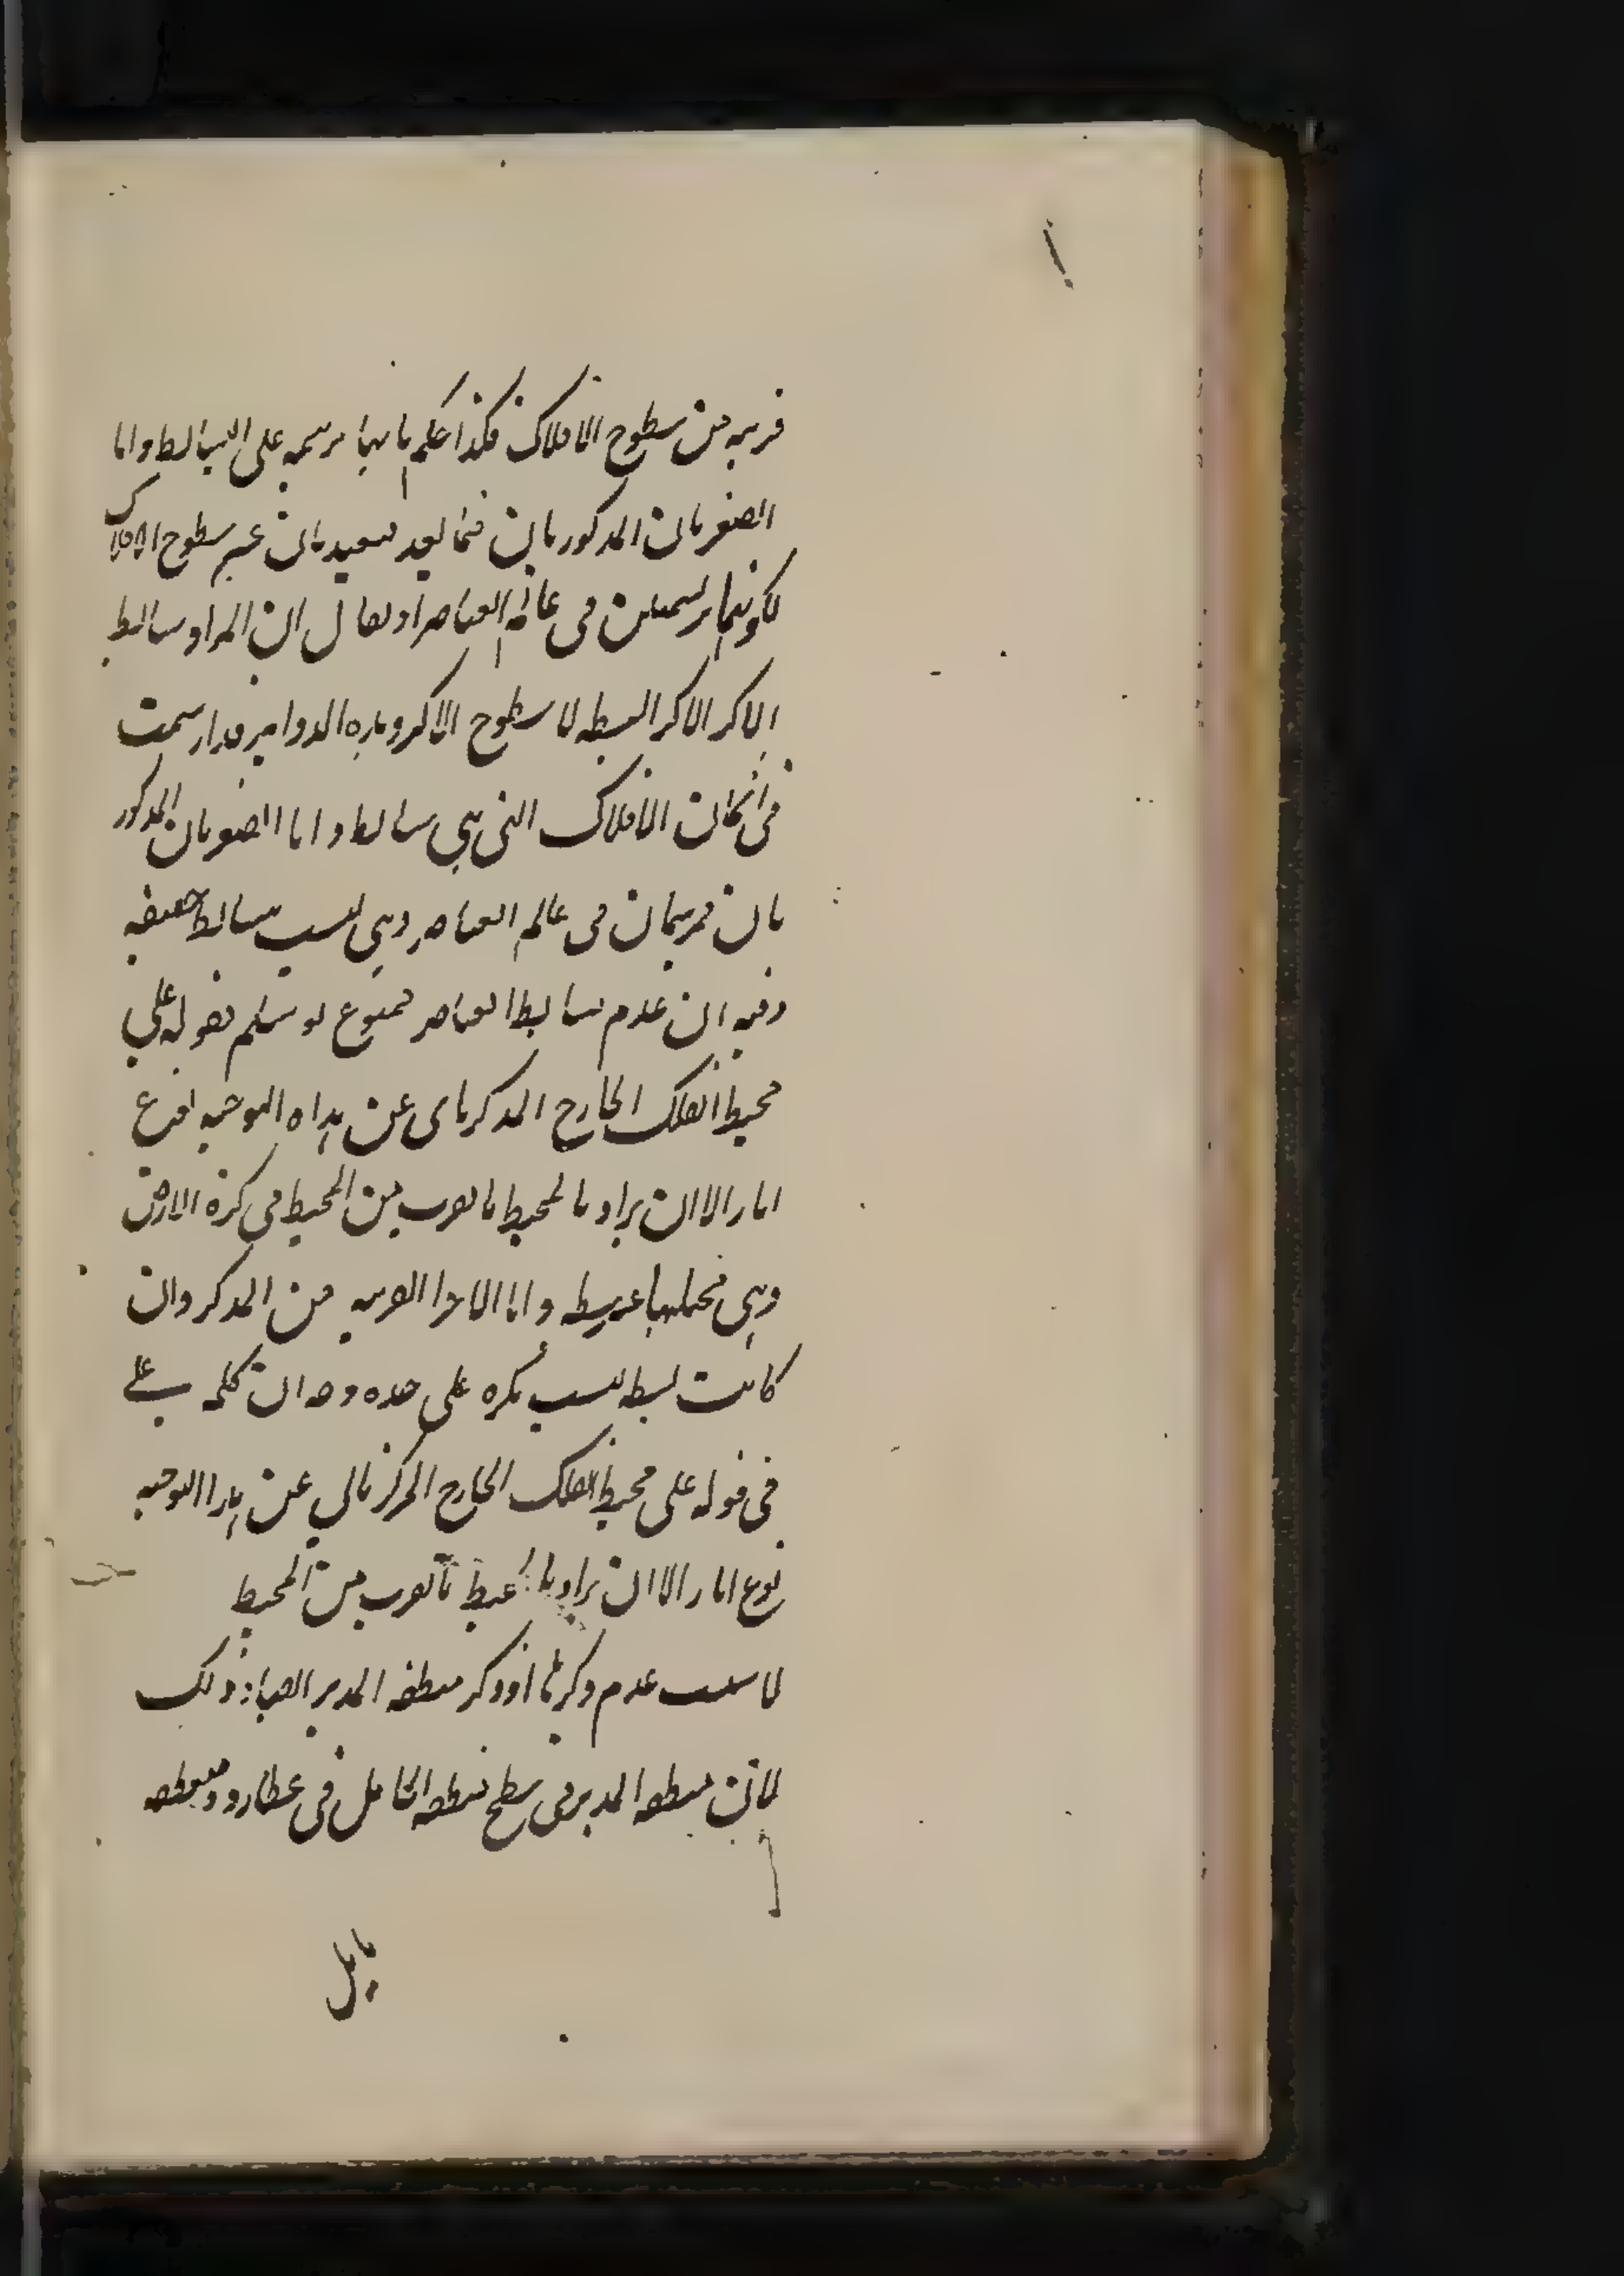 قريبه من سطوح الافلاك فكذا علم بانها مرسمه على البسائط واما
الصغريان المذكوريان فما بعد بعيديان عن سطوح الافلاك
لكونهما مرتسمتين فى عالم العناصر او يقال ان المراد بسائط
الاكر الاكر البسيطه لا سطوح الاكر وهذه الدواير قد ارتسمت
فى اثخان الافلاك التى هى بسائط واما الصغريان المذكور
يان فرسمان فى عالم العناصر وهى ليست بسائط حقيقه
وفيه ان عدم بسائط العناصر ممنوع لو سلم فقوله على
محيط الفلك الخارج المركز يابى عن هذا التوجيه نوع
اباء الا ان يراد بالمحيط ما يقرب من المحيط فى كرة الارض
وهى بسيطه واما الاجزا القريبه من المركز وان
كانت بسيطه ليست بكره على حده وجه ان كلمه على
فى قوله على محيط الفلك الخارج المركز تابى عن هذا التوجيه
نوع اباء الا ان يراد بالمحيط ما يقرب من المحيط
لا يناسب عدم ذكرها اذ ذكر منطقه المدير ايضا وذلك
لان منطقه المدير فى سطح منطقه الحامل فى عطارد ومنطقه
مايل